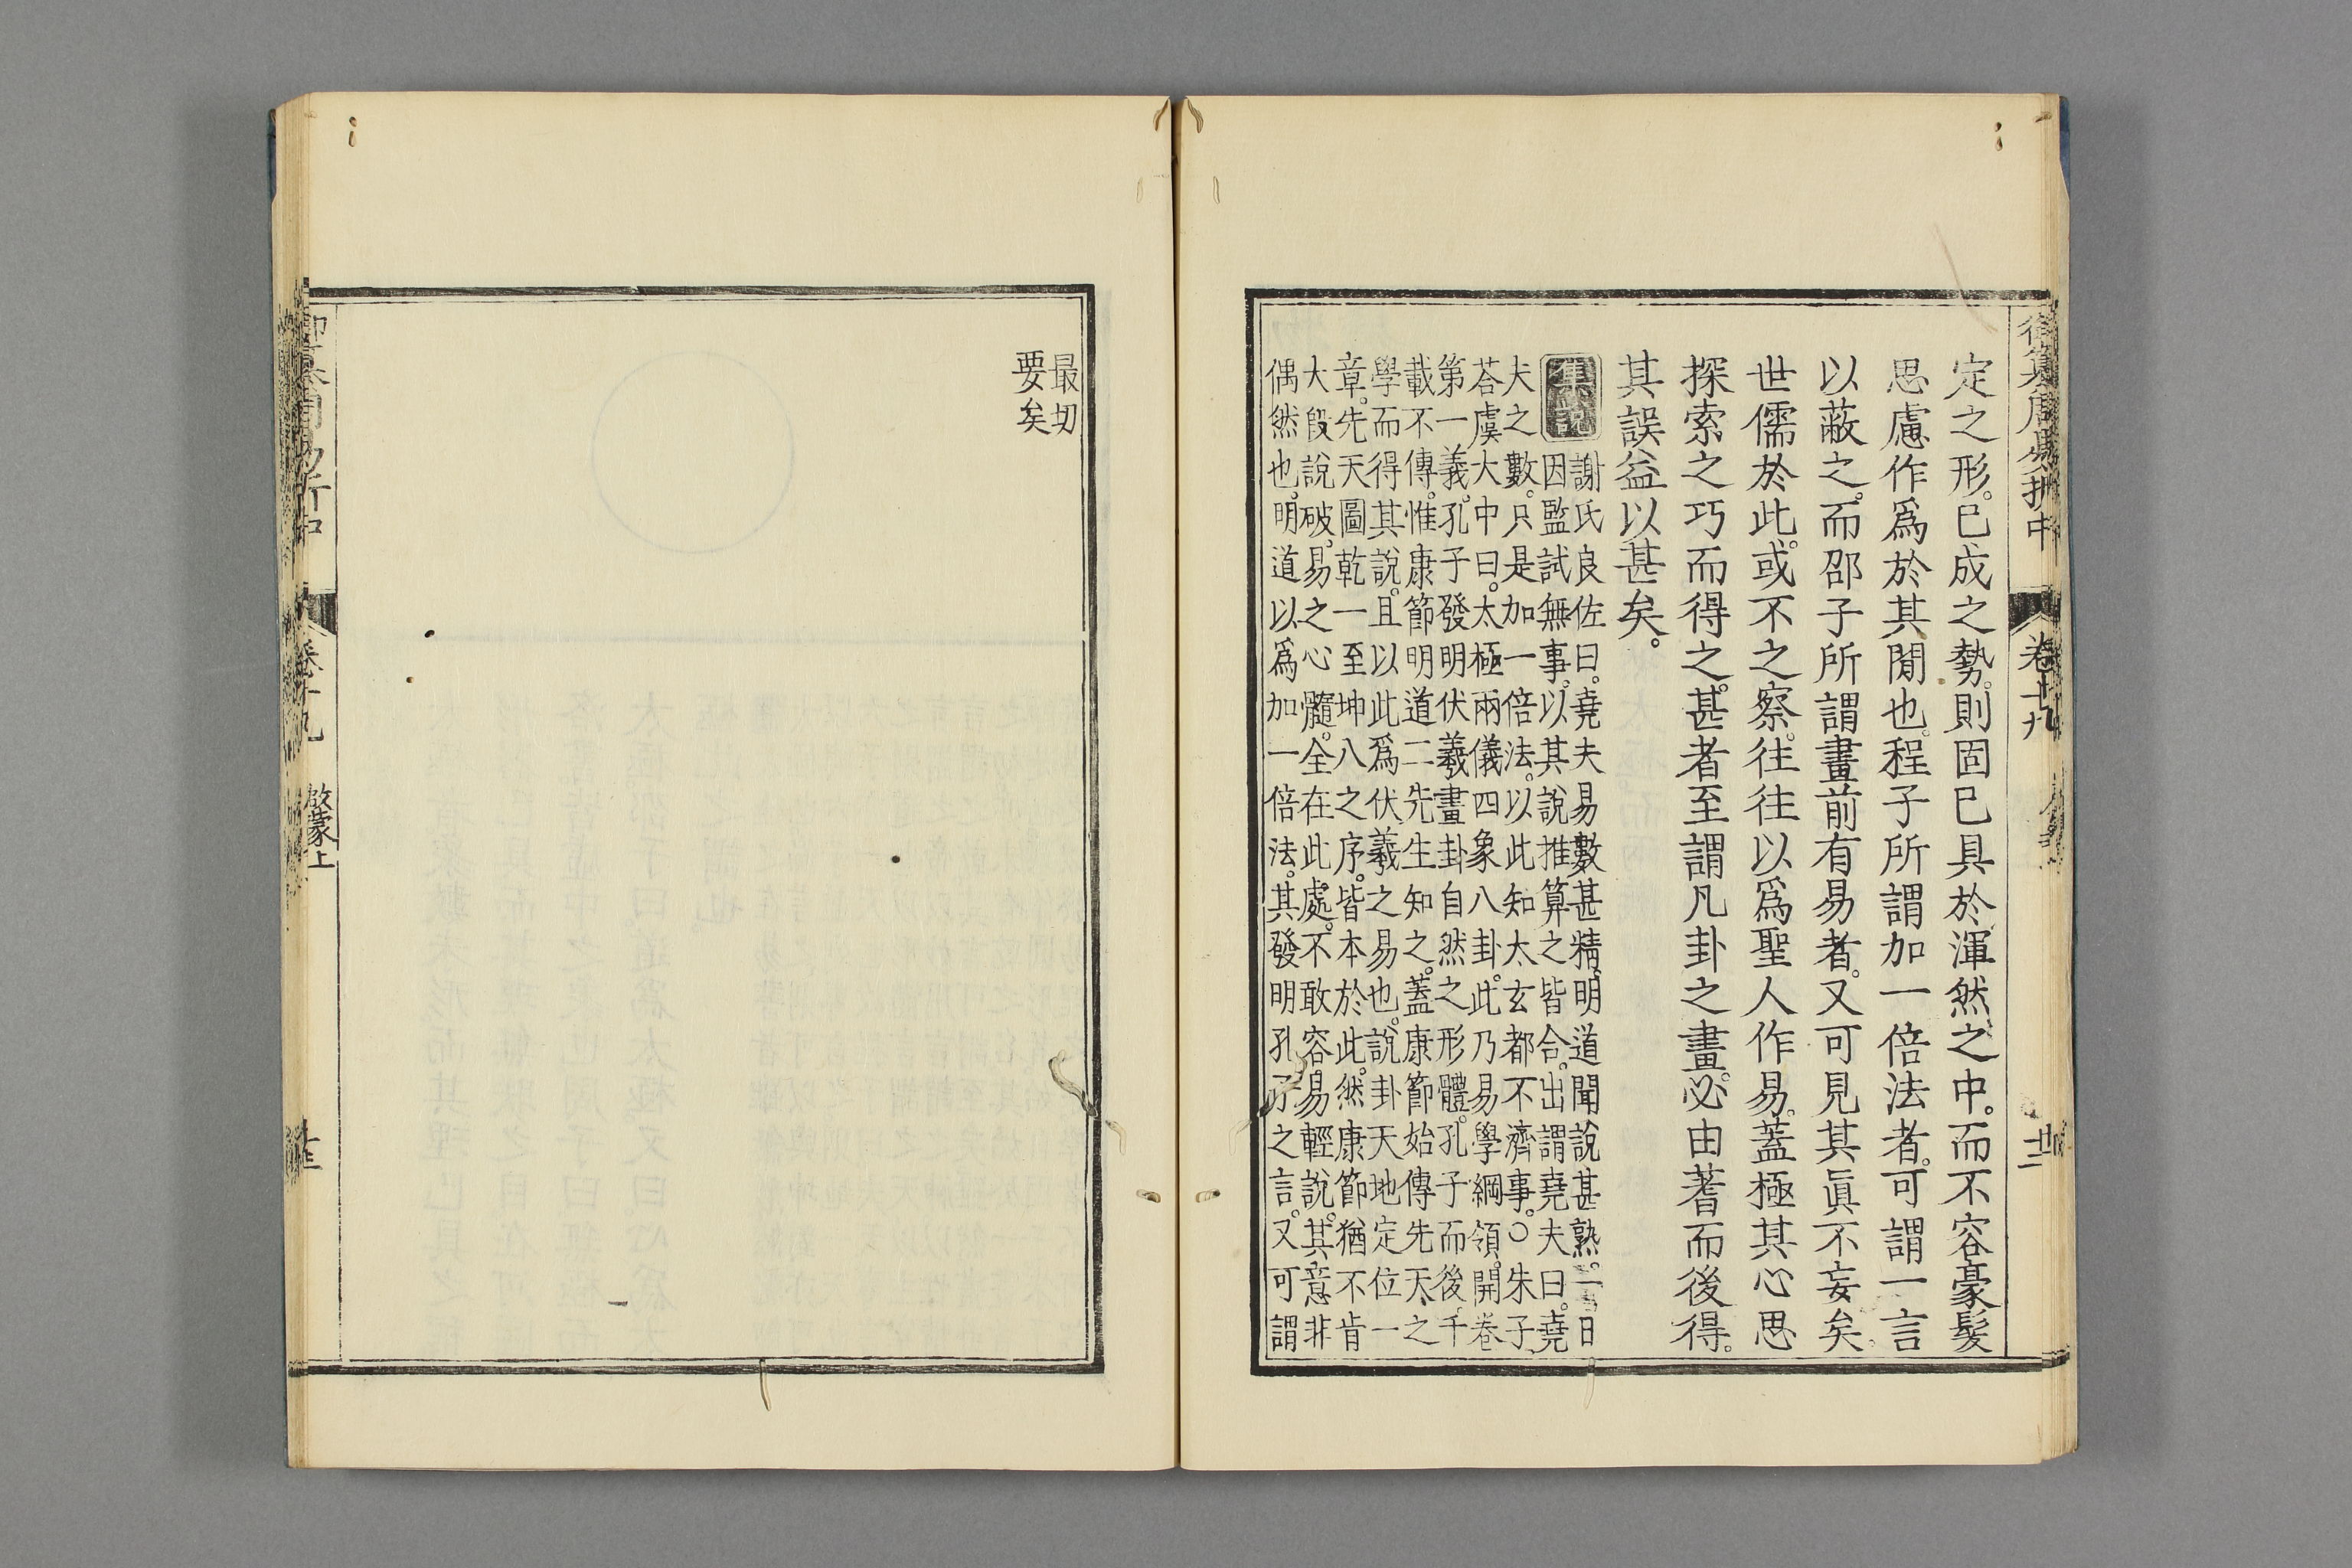 御纂周易折中 卷十九 廿二
定之形。已成之勢。則固已具於渾然之中。而不容豪髮
思慮作爲於其閒也。程子所謂加一倍法者。可謂一言
以蔽之。而邵子所謂畫前有易者。又可見其眞不妄矣。
世儒於此。或不之察。往往以爲聖人作易。蓋極其心思
探索之巧而得之。甚者至謂凡卦之畫。必由蓍而後得。
其誤益以甚矣。
集說
謝氏良佐曰。堯夫易數甚精。明道聞說甚熟。一日
因監試無事。以其說推算之皆合。出謂堯夫曰。堯
夫之數。只是加一倍法。以此知太玄都不濟事。○朱子
荅虞大中曰。太極兩儀四象八卦。此乃易學綱領。開卷
第一義。孔子發明伏羲畫卦自然之形體。孔子而後千
載不傳。惟康節明道二先生知之。蓋康節始傳先天之
學而得其說。且以此爲伏羲之易也。說卦天地定位一
章。先天圖乾一至坤八之序。皆本於此。然康節猶不肯
大段說破。易之心髓。全在此處。不敢容易輕說。其意非
偶然也。明道以爲加一倍法。其發明孔子之言。又可謂
最切
要矣
御纂周易折中 卷十九 啟蒙上